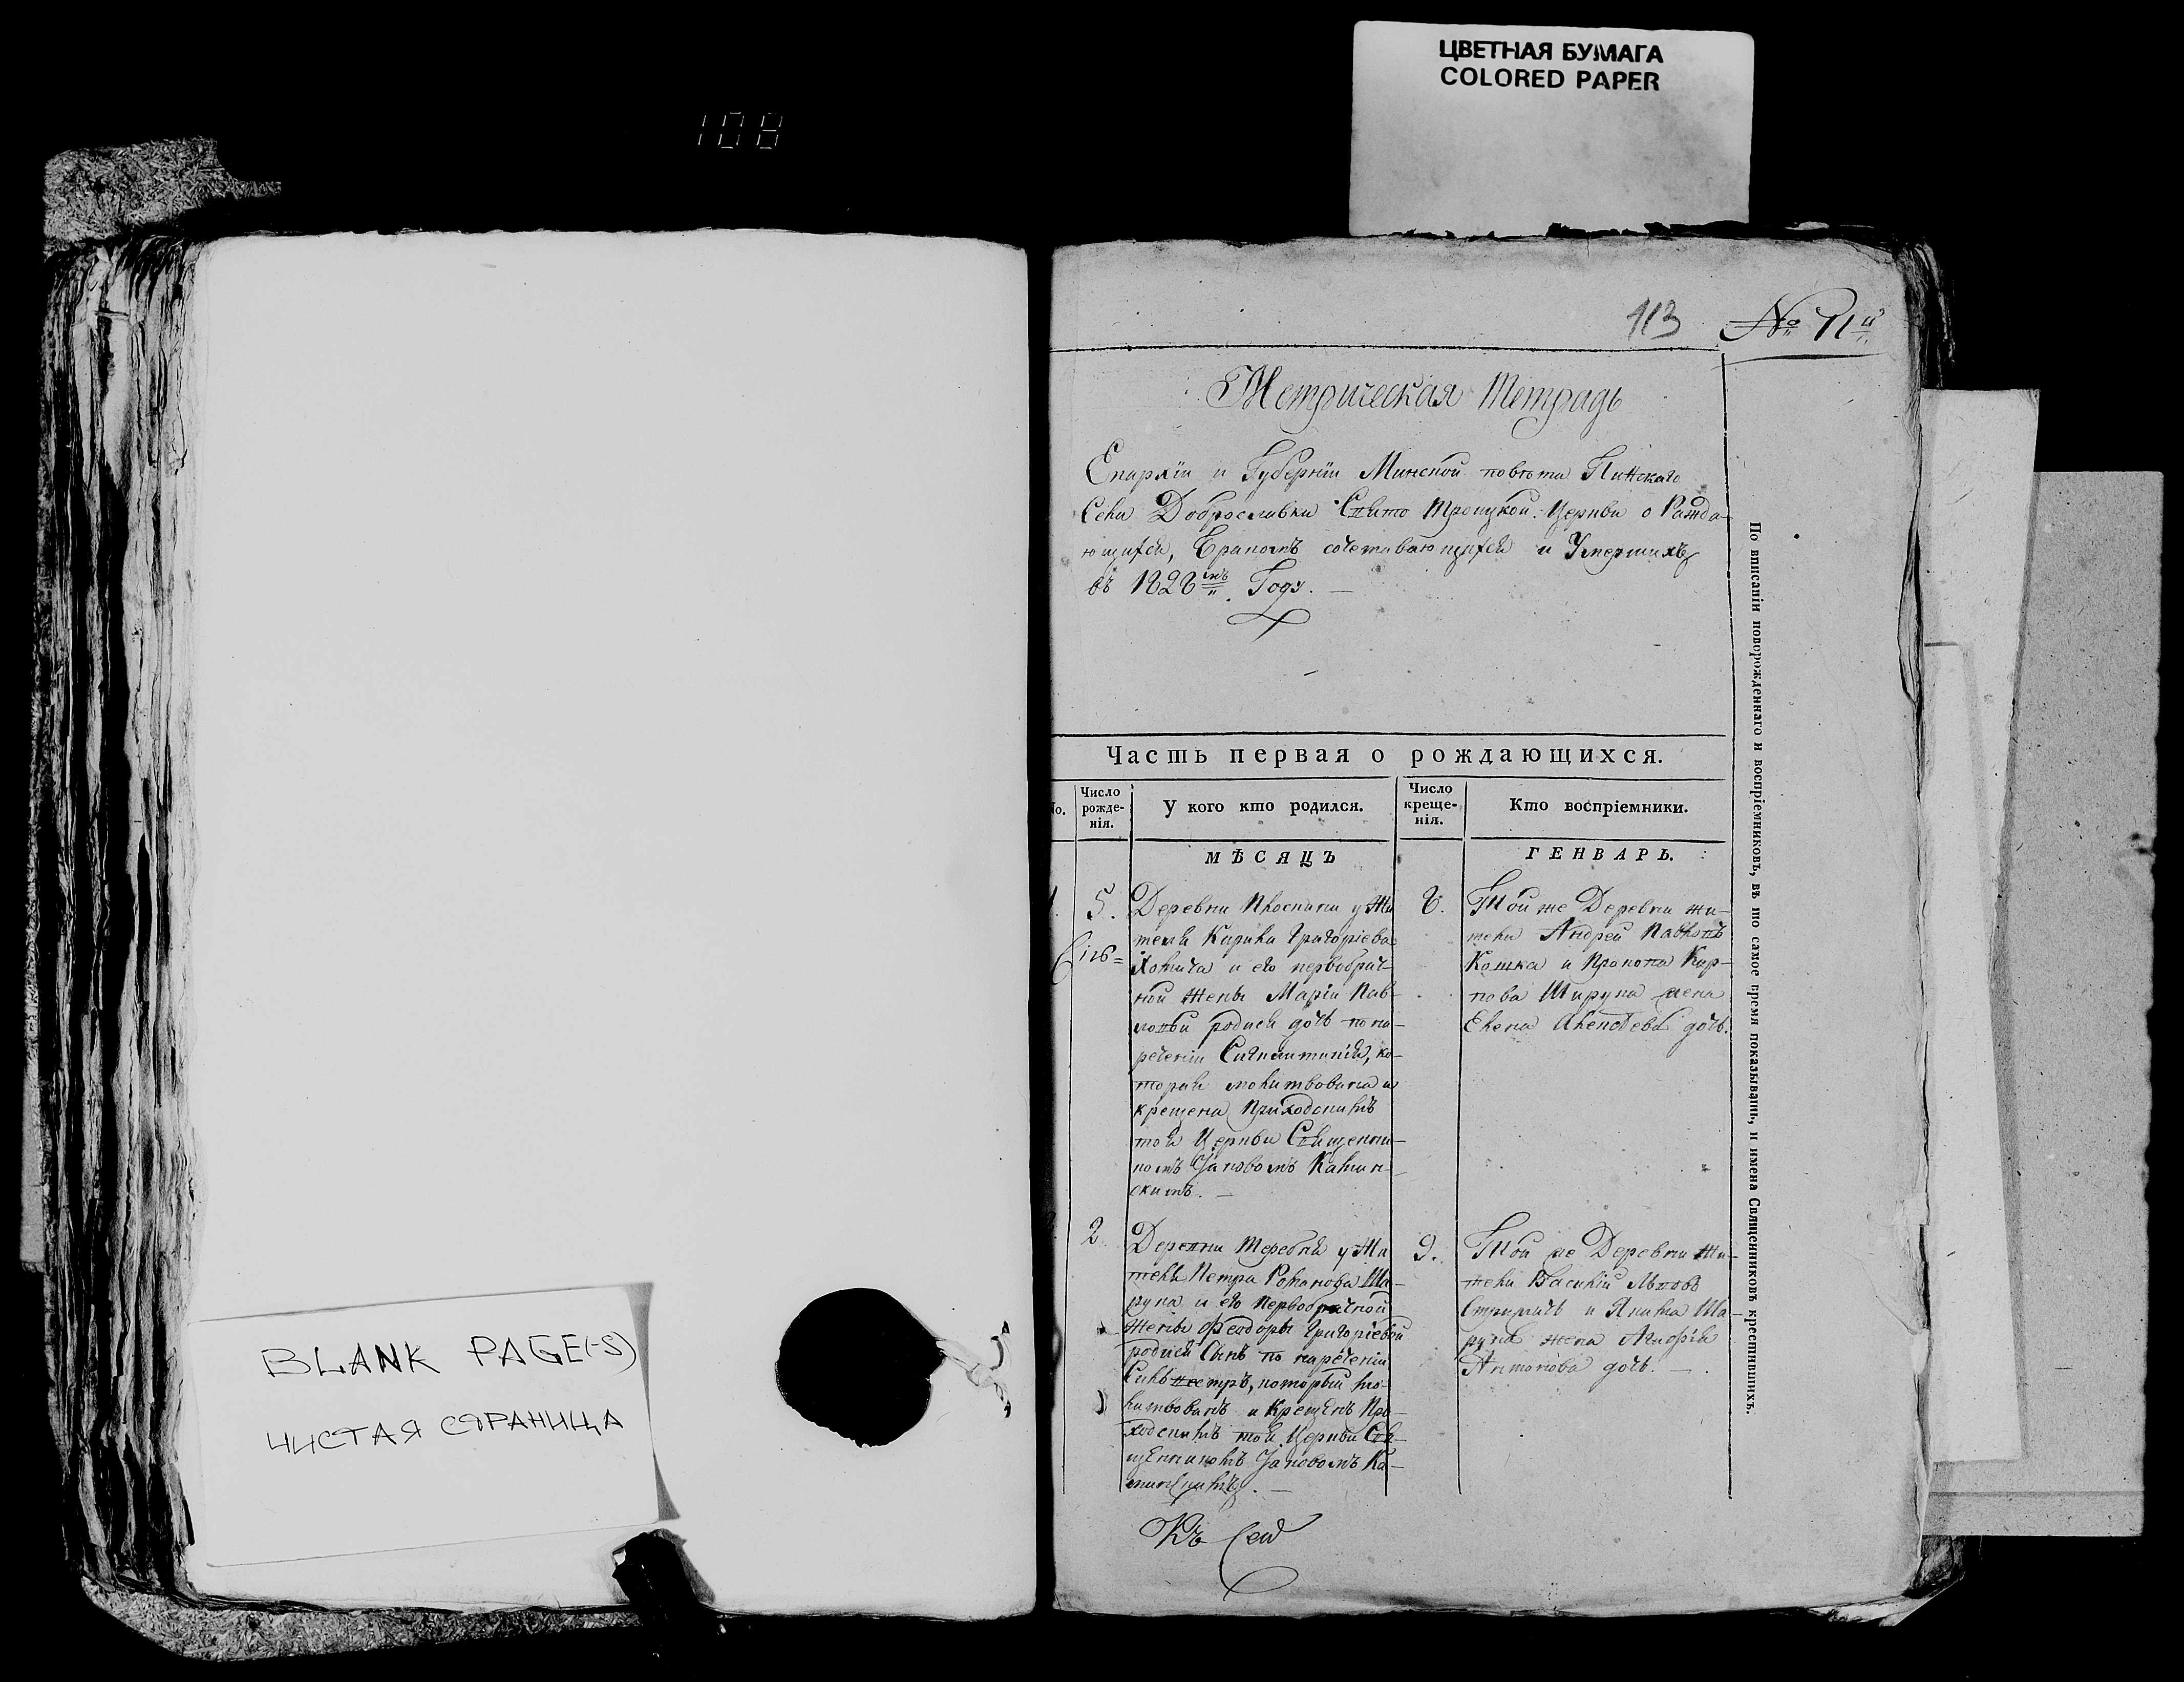 ЦВЕТНАЯ БУМАГА
COLORED PAPER
108
113 № 11й
Метрическая Тетрадь
Епархіи и Губерніи Минской повѣта Пинскаго
Села Доброславки Свято Троицкой Церкви о Ражда-
ющихся, Бракомъ сочетавающихся и Умершихъ
въ 1828мъ Году.
Часть первая о рождающихся.
No. Число рожде-нія. У кого кто родился. Число креще-нія. Кто воспріемники.
МѢСЯЦЪ ГЕНВАРЬ.
5.
Деревни у Жи
теля Кирила Григоріева
и его первобрач-
ной жены Маріи Пав-
ловы родися дочь по на-
речении ко-
торая молитвована и
крещена Приходскимъ
той Церкви Священни-
комъ Іаковомъ Калин-
скимъ.
8.
Той же Деревни жи-
тели Андрей Павловъ
Кошка и Прокопа Кар-
пова Шарупа жена
Елена дочь.
2
Деревни Теребня у Жи
теля Петра Романова Ша-
рупа и его первобрачной
жены Феодоры Григоріевой
родися Сынъ по нареченіи
Сильвестръ, который мо-
литвованъ и крещенъ При-
ходскимъ той Церкви Свя-
щенникомъ Іаковомъ Ка-
линскимъ.
9.
Той же Деревни жи-
тели Василій Львовъ
и Якима Ша-
рупы жена Агафія
Антонова дочь.
Къ сей
По вписаніи новорожденнаго и воспріемниковъ, въ то самое время показывать, и имена Священниковъ крестившихъ.
BLANK PAGE(-S)
ЧИСТАЯ СТРАНИЦА